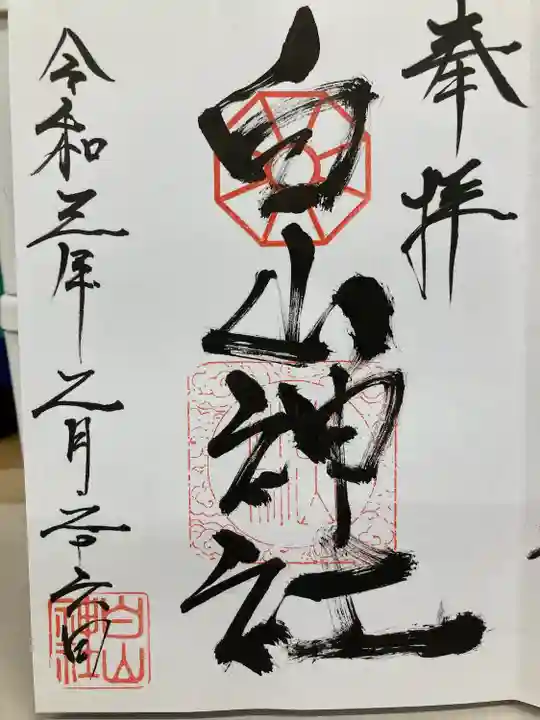 奉拝
白山神社
令和三年 月二十六日
白山
神社